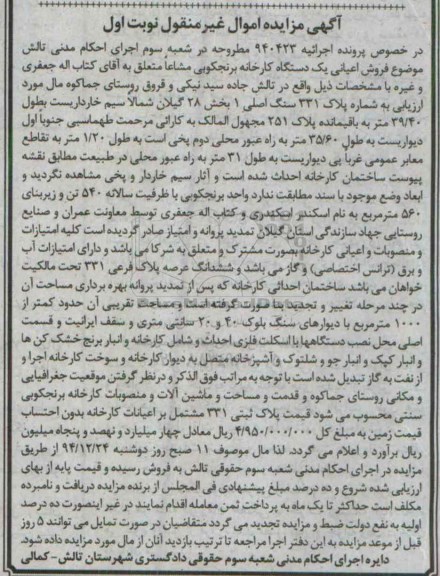 آگهی مزایده اموال غیر منقول نوبت اول
در خصوص پرونده اجرائیه ۹۴۰۴۲۳ مطروحه در شعبه سوم اجرای احکام مدنی تالش
موضوع فروش اعیانی یک دستگاه کارخانه برنجکوبی مشاعاً متعلق به آقای کتاب اله جعفری
و غیره با مشخصات ذیل واقع در تالش جاده سید نیکی و قروق روستای جماکوه مال مورد
ارزیابی به شماره پلاک ۳۳۱ سنگ اصلی ۱ بخش ۲۸ گیلان شمالاً سیم خارداریست بطول
۳۹/۴۰ متر به باقیمانده پلاک ۲۵۱ مجهول المالک به کاراتی مرحمت طهماسبی جنوبا اول
دیواریست به طول ۳۵/۶۰ متر به راه عبور محلی دوم پخی است به طول ۱/۲۰ متر به تقاطع
معابر عمومی غرباً پی دیواریست به طول ۳۱ متر به راه عبور محلی در طبیعت مطابق نقشه
پیوست ساختمان کارخانه احداث شده است و آثار سیم خاردار و پخی مشاهده نگردید و
ابعاد وضع موجود با سند مطابقت ندارد واحد برنجکوبی با ظرفیت سالانه ۵۴۰ تن و زیربنای
۵۶۰ مترمربع به نام اسکندر اسکندری و کتاب اله جعفری توسط معاونت عمران و صنایع
روستایی جهاد سازندگی استان گیلان تمدید پروانه و امتیاز صادر گردیده است کلیه امتیازات
و منصوبات و اعیانی کارخانه بصورت مشترک و متعلق به شرکا می باشد و دارای امتیازات آب
و برق (ترانس اختصاصی) و گاز می باشد و ششدانگ عرصه پلاک فرعی ۳۳۱ تحت مالکیت
خواهان می باشد ساختمان احداثی کارخانه که پس از تمدید پروانه بهره برداری مساحت آن
در چند مرحله تغییر و تجدید بنا صورت گرفته است و مساحت تقریبی آن حدود کمتر از
۱۰۰۰ مترمربع با دیوارهای سنگ بلوک ۴۰ و ۲۰ سانتی متری و سقف ایرانیت و قسمت
اصلی محل نصب دستگاهها با اسکلت فلزی احداث و شامل کارخانه و انبار برنج خشک کن ها
و انبار کپک و انبار جو و شلتوک و آشپزخانه متصل به دیوار کارخانه و سوخت کارخانه اجرا و
از نفت به گاز تبدیل شده است با توجه به مراتب فوق الذکر و درنظر گرفتن موقعیت جغرافیایی
و مکانی روستای جماکوه و قدمت و مساحت و ماشین آلات و منصوبات کارخانه برنجکوبی
سنتی محسوب می شود قیمت پلاک ثبتی ۳۳۱ مشتمل بر اعیانات کارخانه بدون احتساب
قیمت زمین به مبلغ کل ۴/۹۵۰/۰۰۰/۰۰۰ ریال معادل چهار میلیارد و نهصد و پنجاه میلیون
ریال برآورد و اعلام می گردد. لذا مال موصوف ۱۱ صبح روز دوشنبه ۹۴/۱۲/۲۴ از طریق
مزایده در اجرای احکام مدنی شعبه سوم حقوقی تالش به فروش رسیده و قیمت پایه از بهای
ارزیابی شده شروع و ده درصد مبلغ پیشنهادی فی المجلس از برنده مزایده دریافت و نامبرده
مکلف است حداکثر تا یک ماه به پرداخت ثمن معامله اقدام نمایند در غیر اینصورت ده درصد
اولیه به نفع دولت ضبط و مزایده تجدید می گردد متقاضیان در صورت تمایل می توانند ۵ روز
قبل از موعد مزایده به این دفتر اجرا مراجعه تا ترتیب بازدید آنان از مال مورد مزایده داده شود.
دایره اجرای احکام مدنی شعبه سوم حقوقی دادگستری شهرستان تالش- کمالی